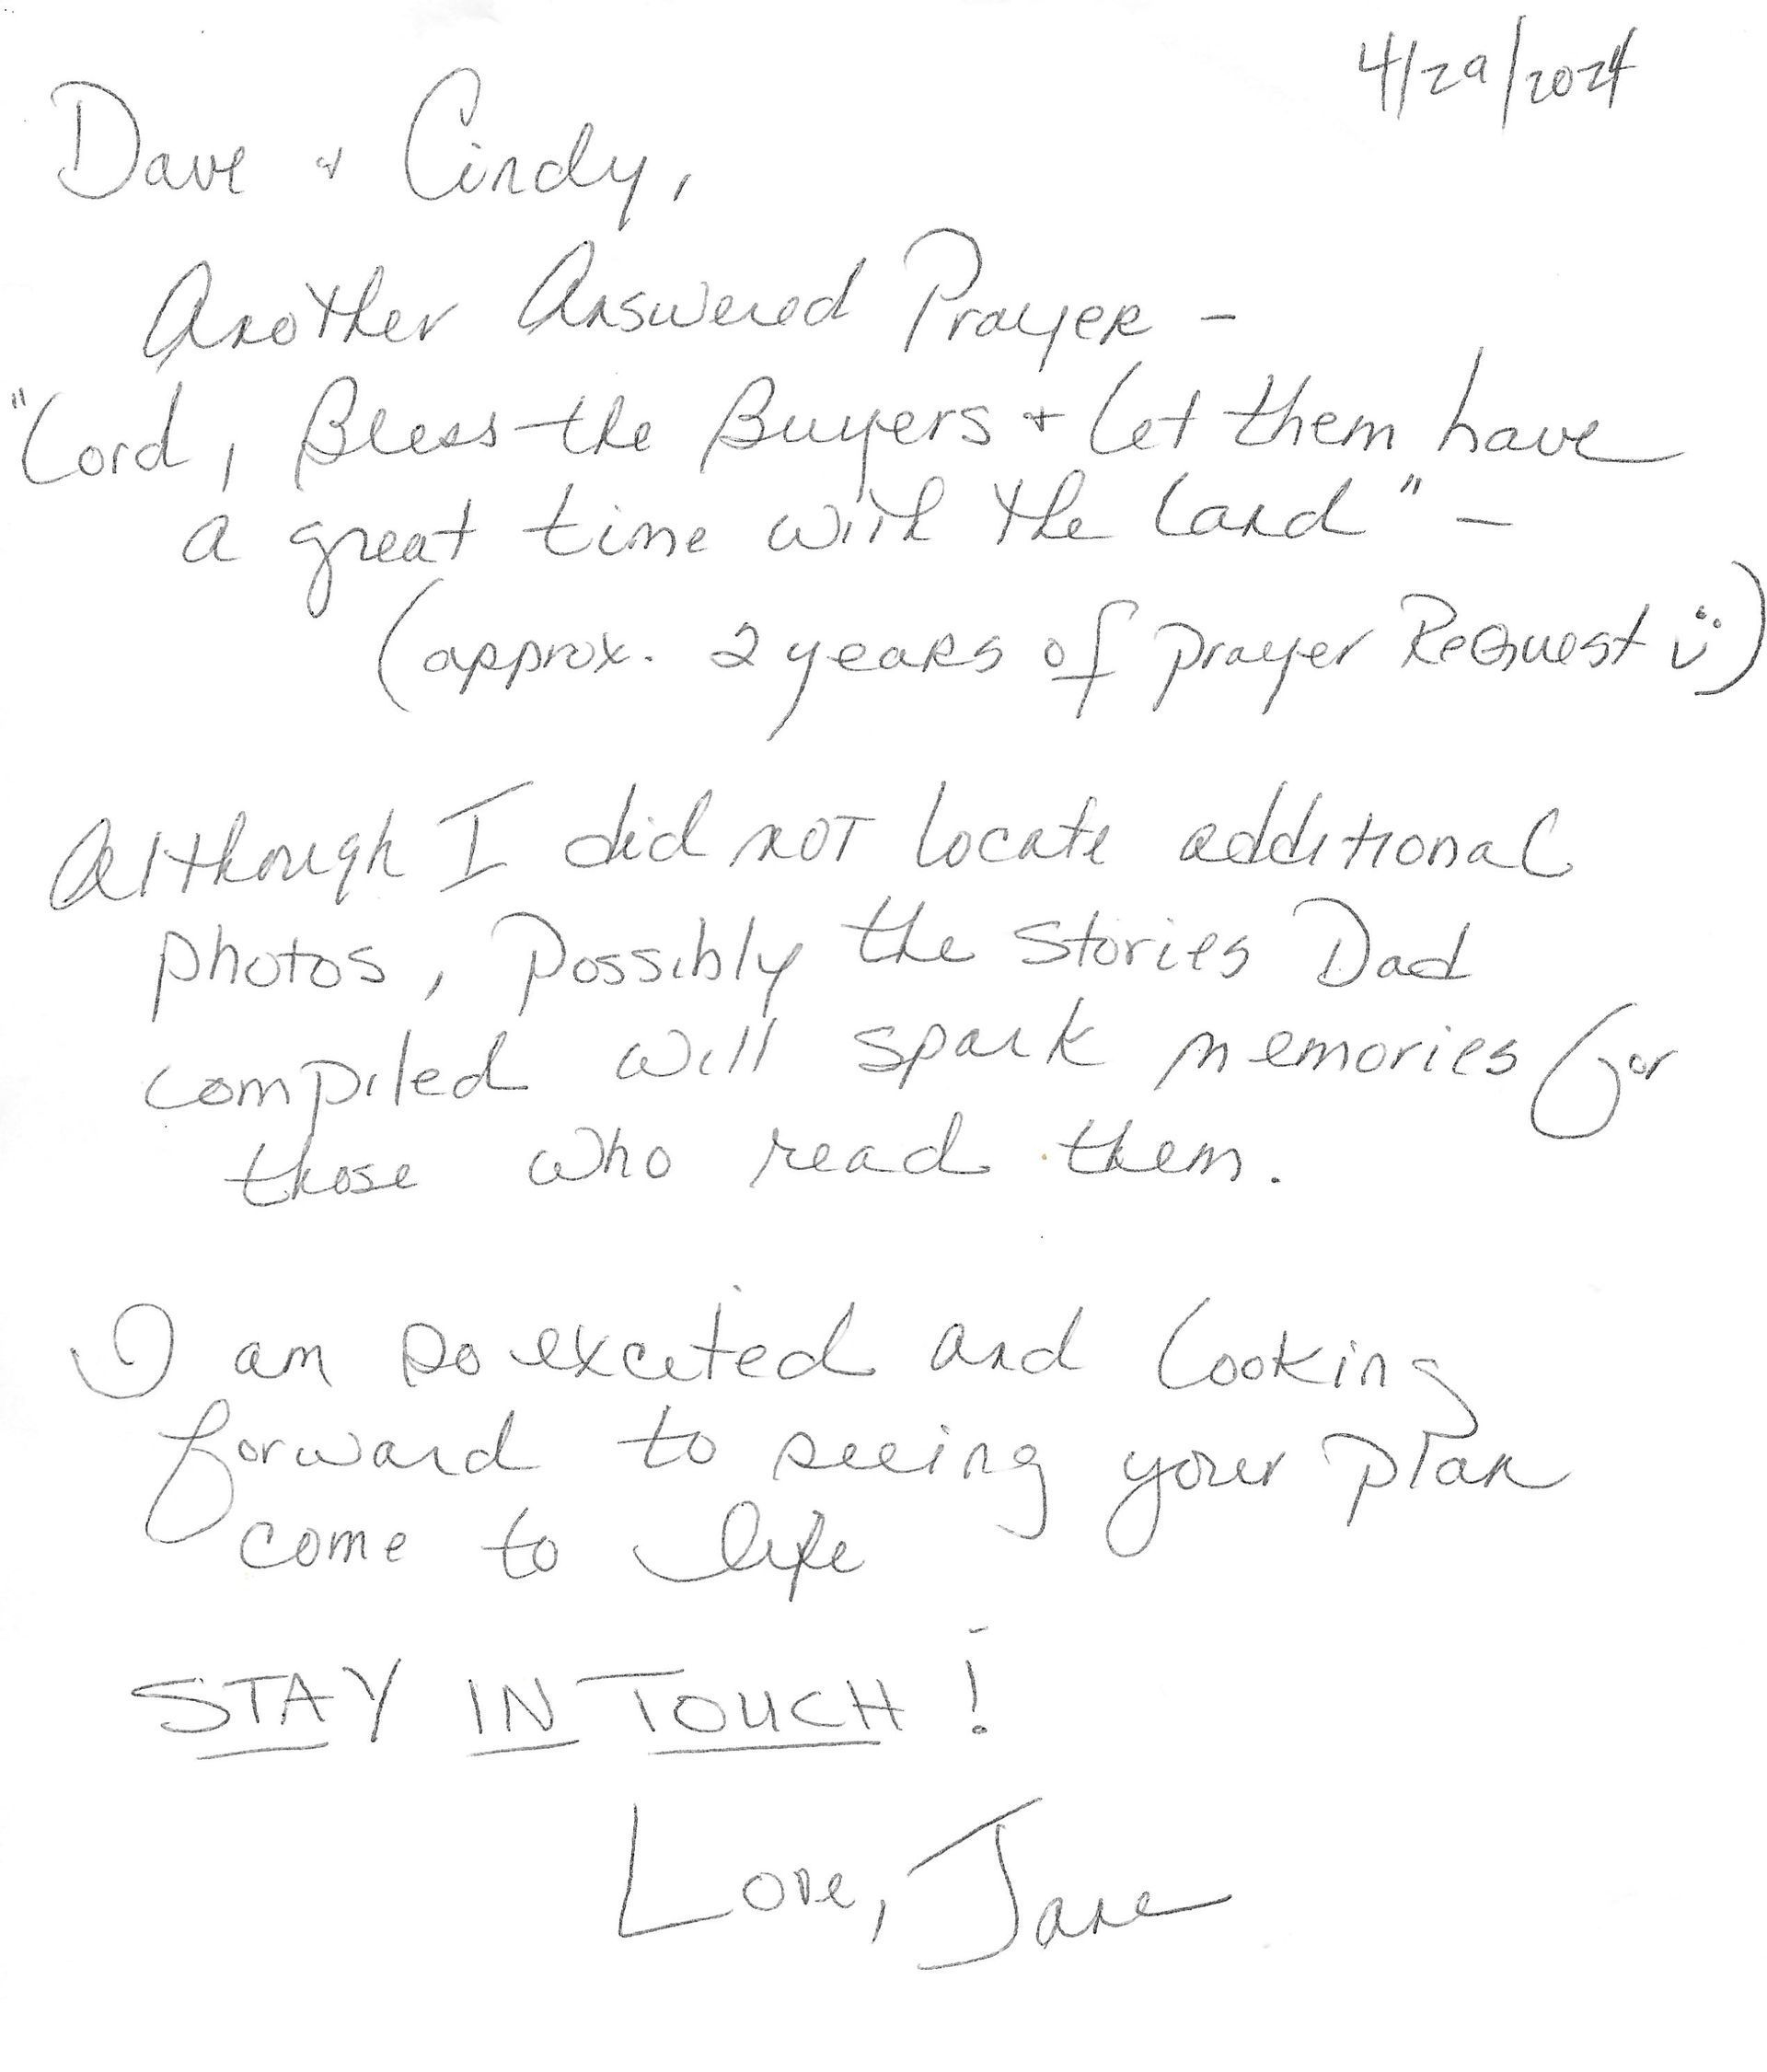 4/29/2024
Dave & Cindy,
Another Answered Prayer -
"Lord, Bless the Buyers + Let them have
a great time with the Land" -
(approx. 2 years of prayer Request ☺)
Although I did not locate additional
photos, possibly the stories Dad
compiled will spark memories for
those who read them.
I am so excited and looking
forward to seeing your plan
come to life
STAY IN TOUCH!
Love, Jane